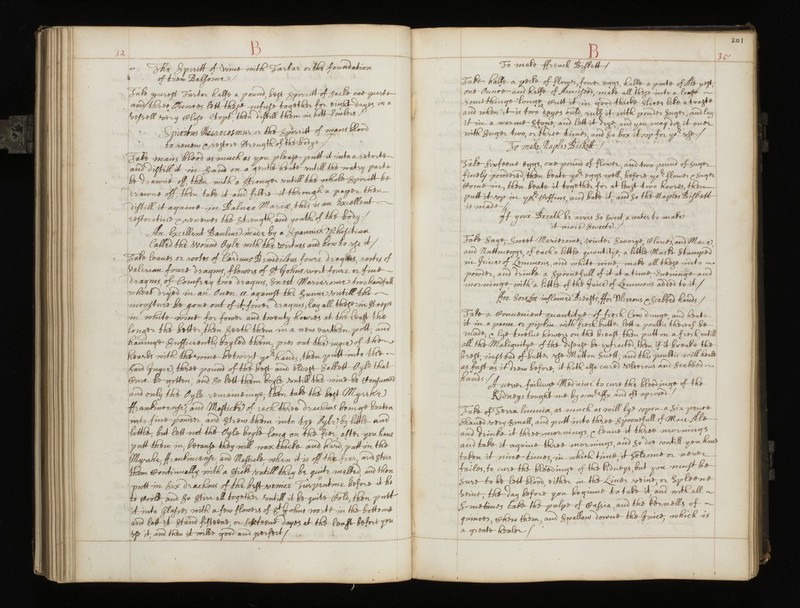 32
B
The Spiritt of Wine with Tartar or the foundation
of them Balsome
Take purest Tartar halfe a pound, best Spiritt of sacke one quarte
and three Ounces lett these infuse together for eight dayes in a
vessell very close stopt then distill them in hott Embers
Spiritus Microcosmus or the Spiritt of mans blood
to renew & restore strength of the body
Take mans blood as much as you please putt it into a retorte
and distill it in Sand on a gentle heate untill the watry parte
be drawne off, then with a stronger untill the whole Spiritt be
drawne off, then take it and filtre it through a paper then
distill it againe in Balneo Mariæ, this is an Excellent
restorative & renewes the strength, and youth of the body
An Excellent Baulme made by a Spannish Phisitian
Called the Wound Oyle with the vertues and how to use it
Take leaves or rootes of Carduus Benedictus foure dragmes, rootes of
Valerian foure dragms, flowers of St Johns wort foure or five
dragms, of Comfrey two dragms, sweet Marierome two handfull
wheat dryed in an Oven or against the Sunne untill the
moysture be gone out of it foure dragms, lay all these in steepe
in white wine for foure and twenty howres at the least the
longer the better, then seeth them in a new earthen pott, and
haveinge Sufficiently boyled them, pres out the iuyce of the
hearbs with the wine betwixt yr hands, then putt into the
said Juyce three pound of the best and oldest Sallett Oyle that
Can be gotten, and so lett them boyle untill the wine be Consumed
and only the Oyle remaineinge, then take the best Myrrhe
ffrankincense, and Mastick of each three drachms beinge beaten
into fine powder, and strew them into the Oyle by little and
little, but lett not the Oyle boyle long on the fier, after you have
putt them in, because they will wax thicke and hard, putt in the
Myrrhe, ffrankincense and Mastick when it is off the fier, and stir
them Continually with a sticke untill they be quite melted and then
putt in six drachms of the best venice Turpentine before it be
to Coole and so stirr all together untill it be quite Cold, then putt
it into Glasses with a few flowers of St Johns worte in the bottome
and lett it stand fifteene, or sixteene dayes at the least before you
use it, and then it will be good and perfect
201
B
35
To make ffrench Biskett
Take halfe a pecke of flower, fower eggs, halfe a pinte of Ale yest
one Ounce and halfe of Anniseeds, make all these into a loafe
somethinge longe, cutt it in good thicke slices like a toaste
and when it is two dayes old, rubb it with powder Sugar, and lay
it in a warme Stove, and lett it drye, and you may doe it over
with Sugar two, or three times, and so box it up for yr use
To make Naples Biskett
Take Sixteene eggs, one pound of flower, and two pound of Sugar
finely powdered, then beate yr eggs well, before yr flower & Suger
Come in, then beate it together for at least two howers, then
putt it up in yr Coffins, and bake it, and so the Naples Biskett
is made
If your Breath be never so Sweet a water to make
it more Sweete
Take Sage, Sweet Marierome, winter Savorye, Cloves, and Mace
and Nuttmeggs, of each a little quantity, a little Maste Stamped
in Juice of Lemmons, and white wine, make all these into a
powder, and drinke a Spoonefull of it at a time Eveninge and
morninge with a little of the Juice of Lemmons added to it
For Soreffe inflamed Breasts, ffor Ulcerous & Scabbed hands
Take a Convenient quantitye of fresh Cow dunge, and heate
it in a panne or pipkin with fresh butter lett a poultis thereof be
made, & lye twelve howers on the breast, then putt on a fresh untill
all the Malignitye of the disease be extracted, then if it breake the
breast, instead of butter, use Mutton Suett, and this poultis will heale
as fast as it drew before, it hath also cured Ulcerous and Scabbed
hands
A never failinge Medicine to cure the bleedinge of the
Kidneys tought me by and oft aproved
Take of Terra lumnia, as much as will lye upon a six pence
shaved very small, and putt into three Spoonefull of Milde Ale
and drinke it three mornings, & leave it three mornings
and take it againe three mornings, and so doe untill you have
taken it nine times, in which time, it seldome or never
failes, to cure the bleedinge of the kidneys, but you must be
sure to be lett blood either in the Liver veine, or Spleene
veine, the day before you beginne to take it, and with all
Sometimes take the pulpe of Cassia, and the kernells of
quinces, chew them, and swallow downe the Juice, which is
a greate healer